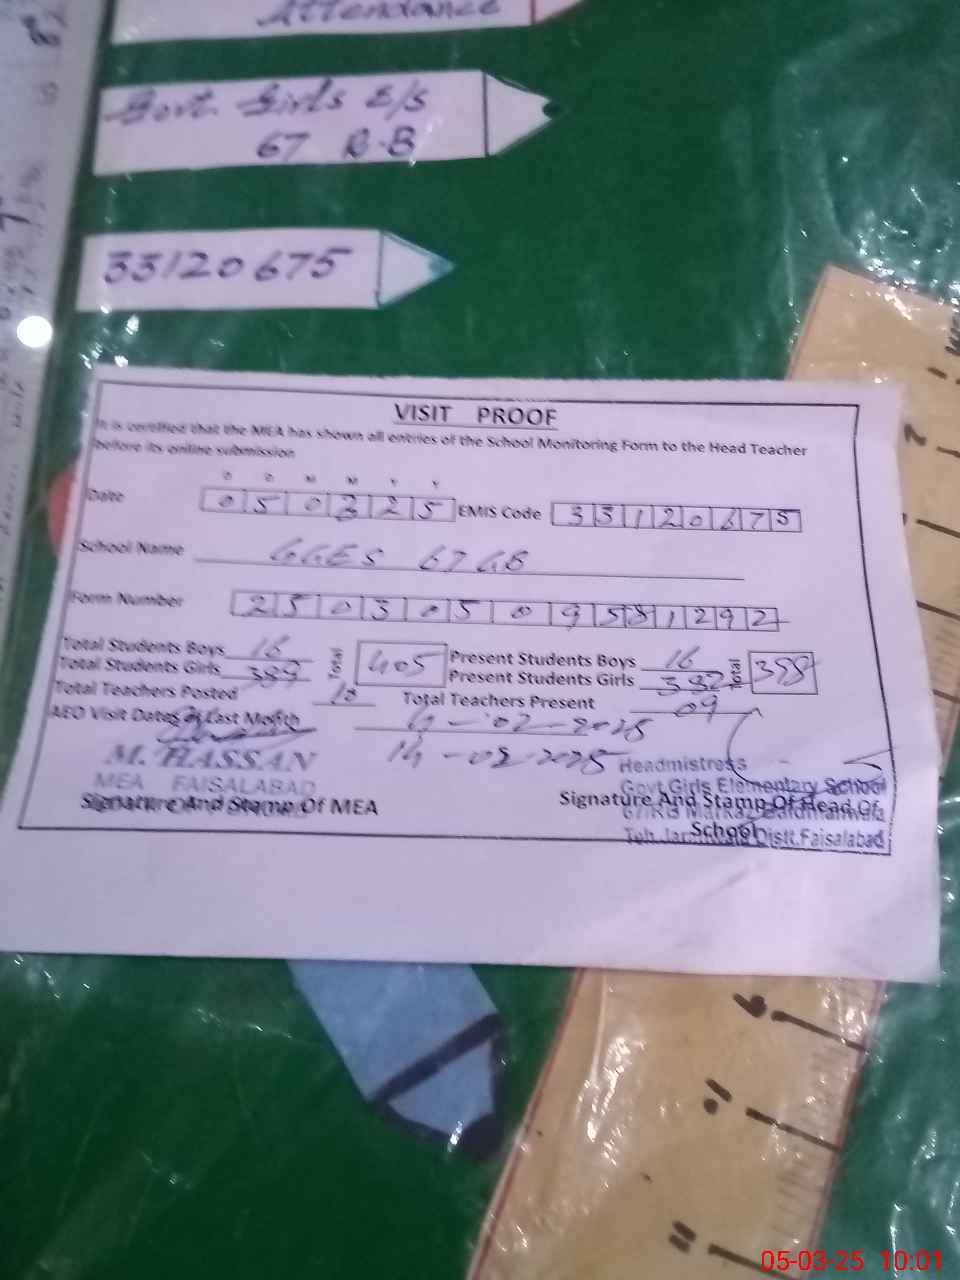 Attendance
Govt. Girls E/S
67 R.B
33120675
VISIT PROOF
It is certified that the MEA has shown all entries of the School Monitoring Form to the Head Teacher
before its online submission
D D M M Y Y
Date 0 5 0 3 2 5 EMIS Code 3 3 1 2 0 6 7 5
School Name GGES 67 GB
Form Number 2 5 0 3 0 5 0 9 5 8 1 2 9 2
Total Students Boys 16 Total 405 Present Students Boys 16 Total 398
Total Students Girls 389 Present Students Girls 382
Total Teachers Posted 10 Total Teachers Present 09
AEO Visit Dates of Last Month 11-02-2025
14-02-2025
M. HASSAN
MEA FAISALABAD
Signature And Stamp Of MEA
Headmistress
Govt Girls Elementary School
Signature And Stamp Of Head Of
School
Distt.Faisalabad
05-03-25 10:01